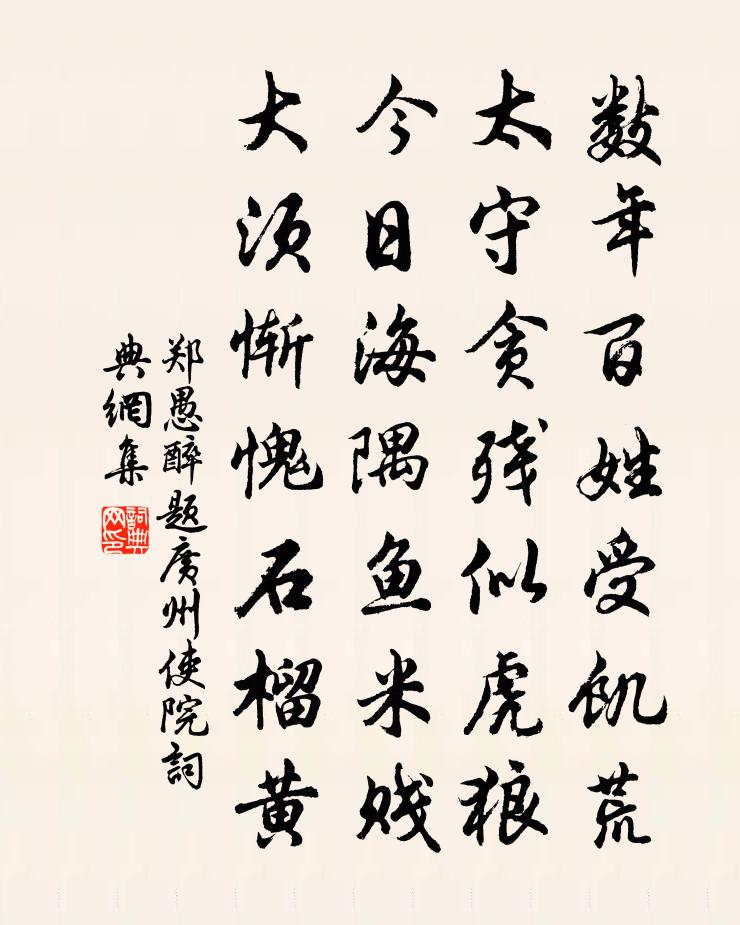 数年百姓受饥荒
太守贪残似虎狼
今日海隅鱼米贱
大须惭愧石榴黄
郑愚醉题廣州使院詞
典網集
詞典网印